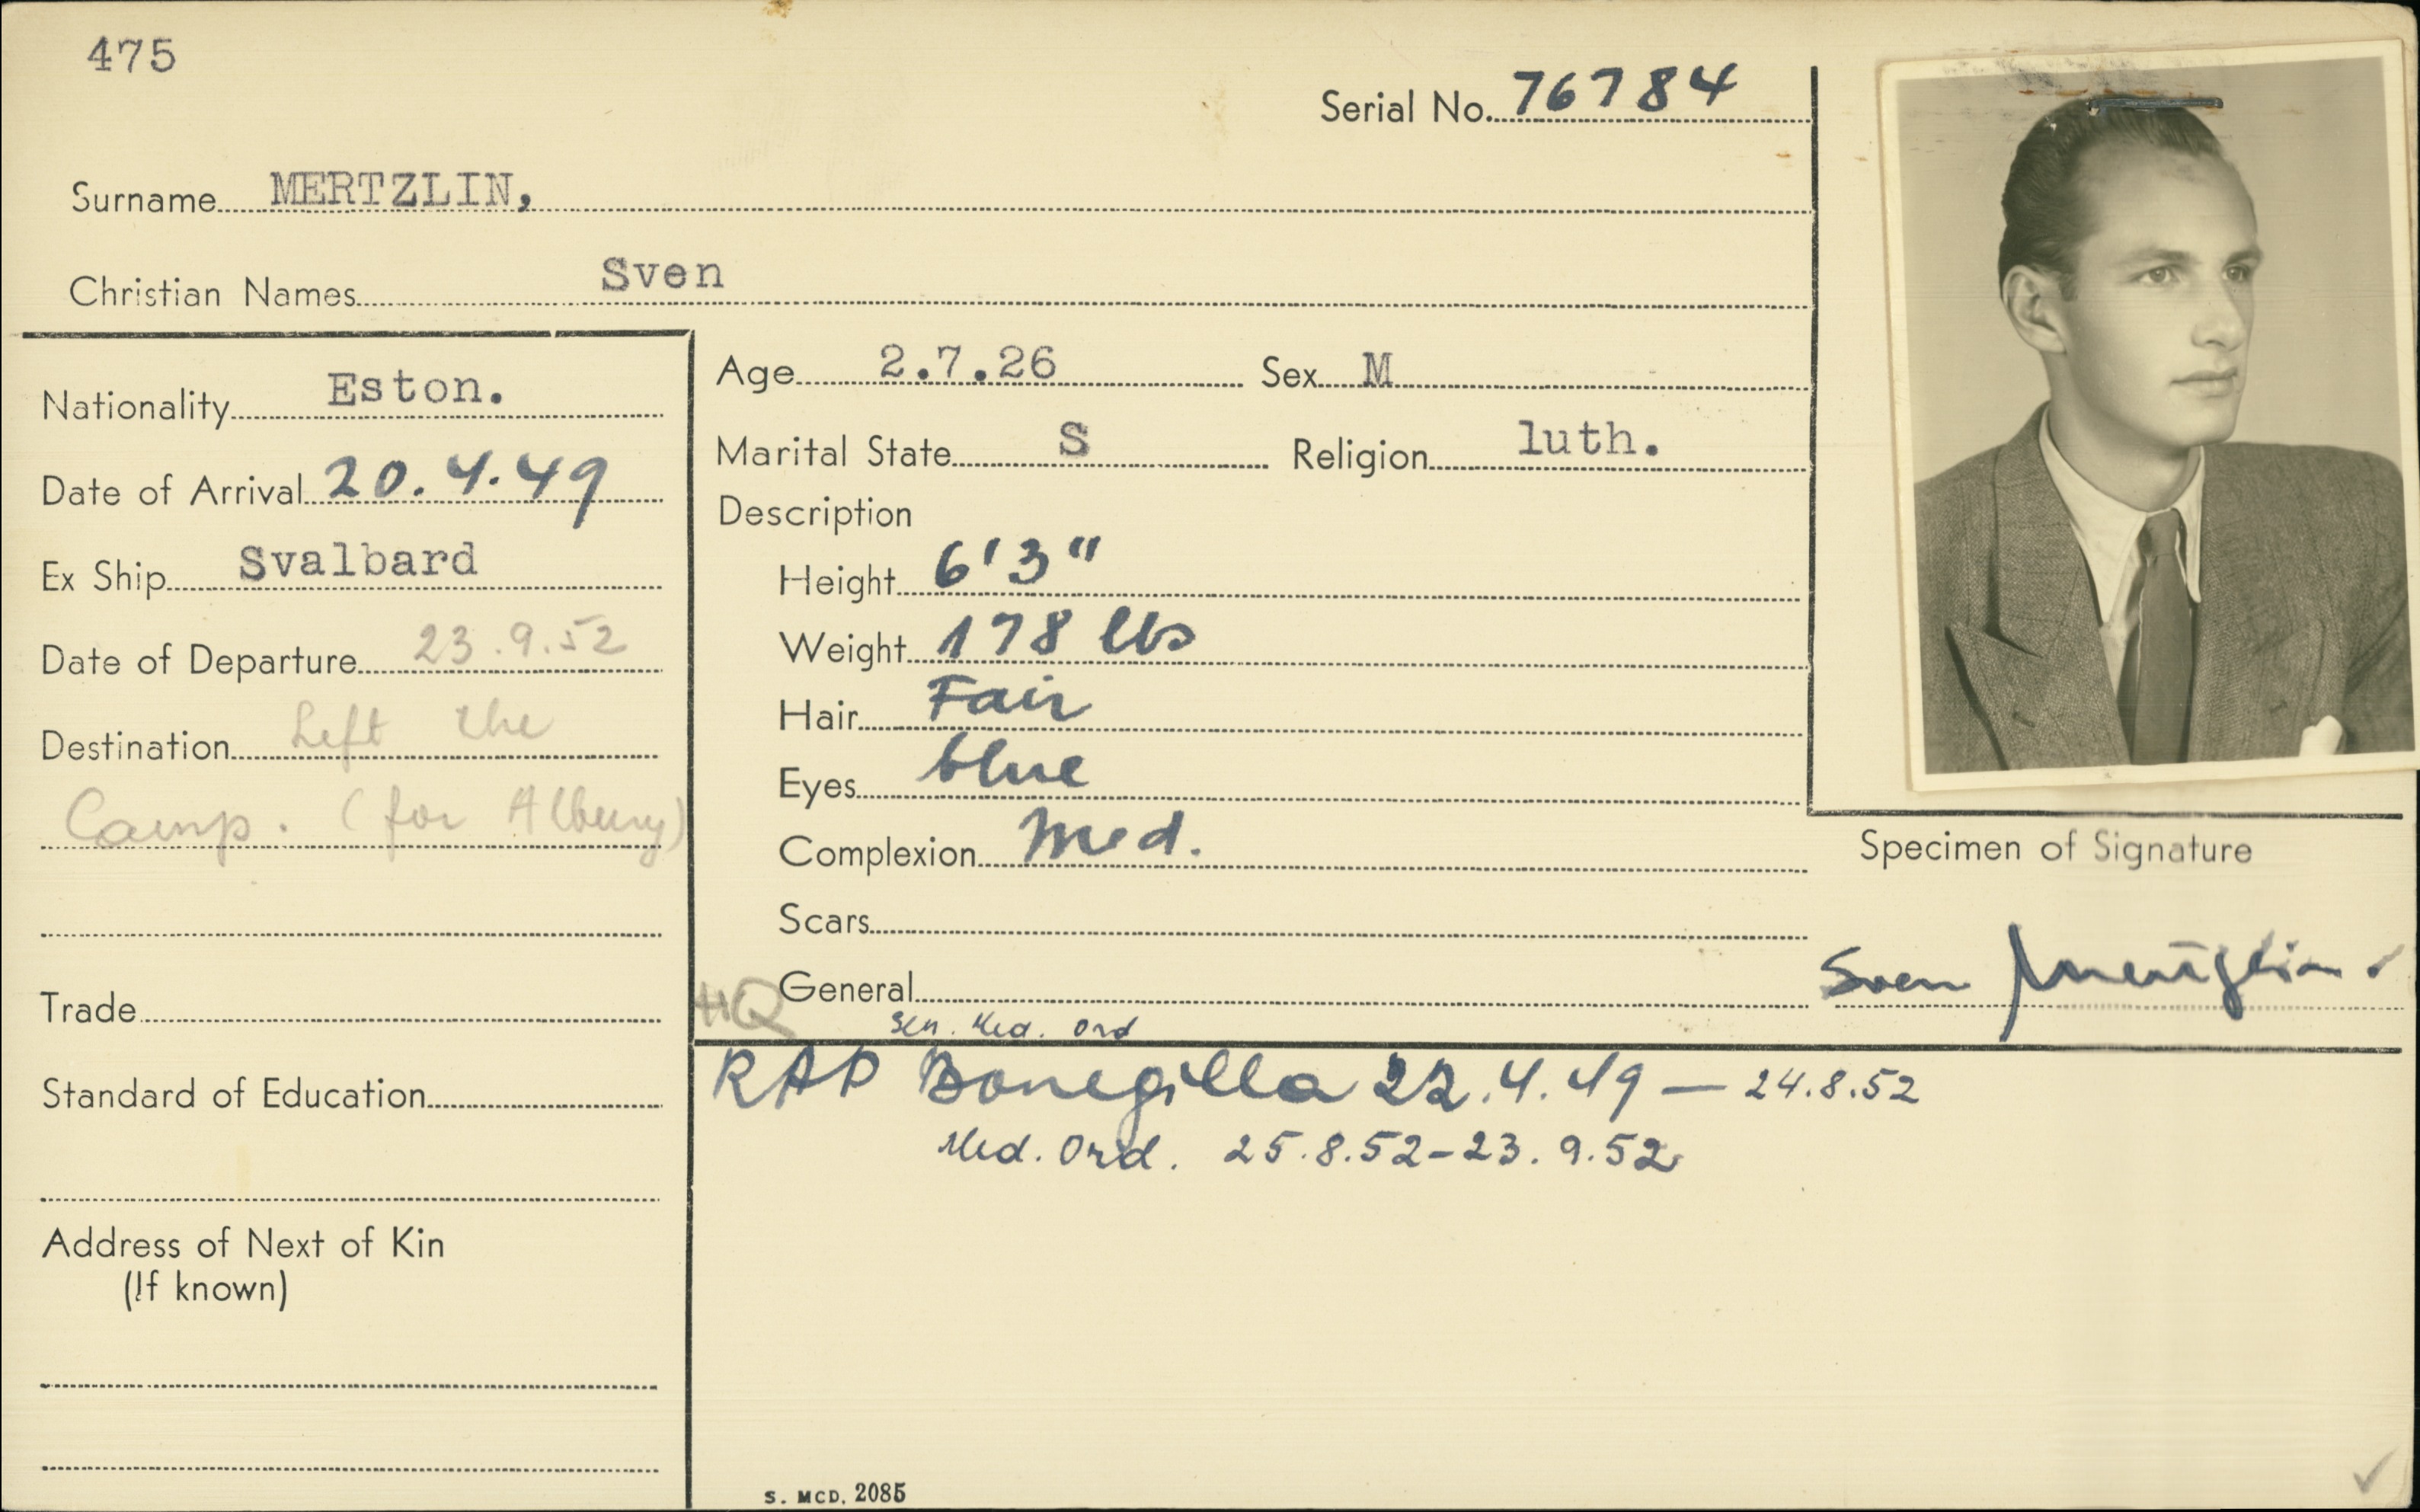 475
Serial No. 76784
Surname MERTZLIN,
Christian Names Sven
Nationality Eston.
Date of Arrival 20.4.49
Ex Ship Svalbard
Date of Departure 23.9.52
Destination Left the
Camp. (for Albury)
Trade
Standard of Education
Address of Next of Kin
(If known)
Age 2.7.26 Sex M
Marital State S Religion luth.
Description
Height 6'3"
Weight 178 lbs
Hair Fair
Eyes blue
Complexion Med.
Scars
General
HQ
Sen. Med. Ord
RAP Bonegilla 22.4.49 — 24.8.52
Med. Ord. 25.8.52-23.9.52
Specimen of Signature
Sven Mertzlin
S. MCD. 2085